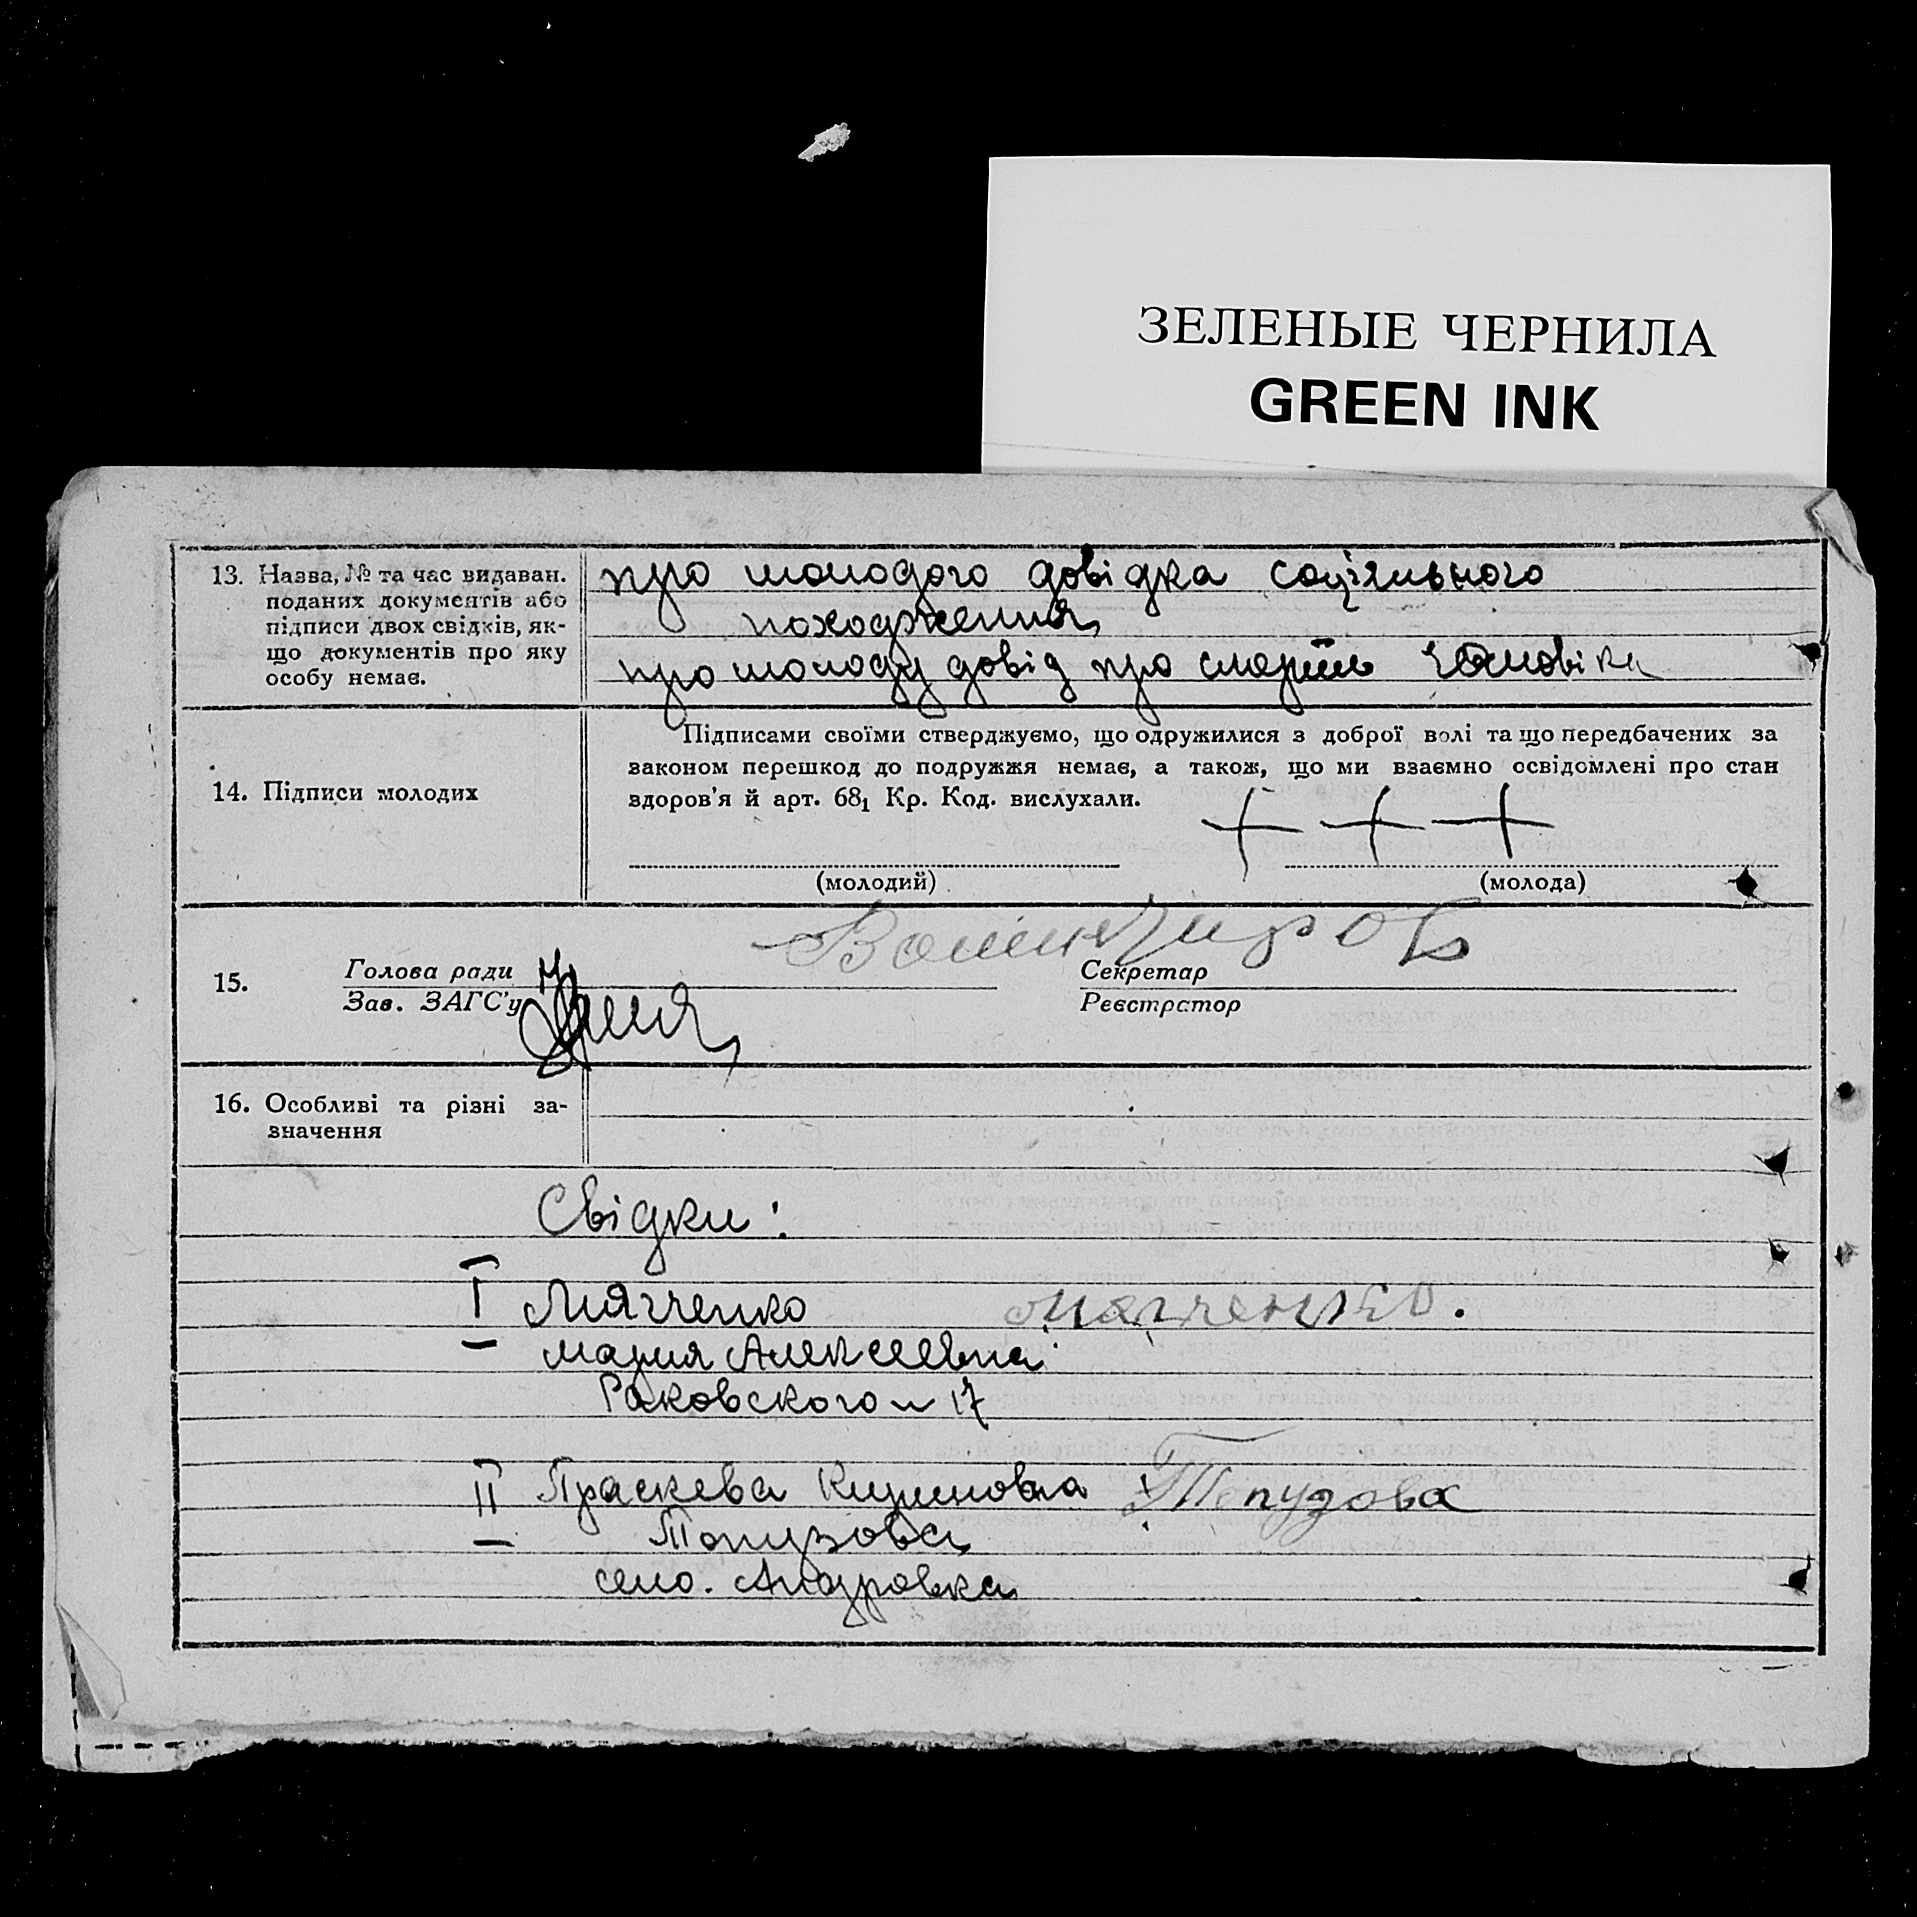 ЗЕЛЕНЫЕ ЧЕРНИЛА
GREEN INK
13. Назва, № та час видаван.
поданих документів або
підписи двох свідків, як-
що документів про яку
особу немає.
про молодого довідка соціяльного
походження
про молоду довід про смерть чоловіка
14. Підписи молодих
Підписами своїми стверджуємо, що одружилися з доброї волі та що передбачених за
законом перешкод до подружжя немає, а також, що ми взаємно освідомлені про стан
здоров'я й арт. 68₁ Кр. Код. вислухали.
+ + +
(молодий)
(молода)
15.
Голова ради
Зав. ЗАГС'у
Секретар
Реєстратор
16. Особливі та різні за-
значення
Свідки:
I Мягченко
Мягченко.
Мария Алексеевна
Раковского 17
II Праскева Кириловна
Топузова
Топузова
село. Андровка